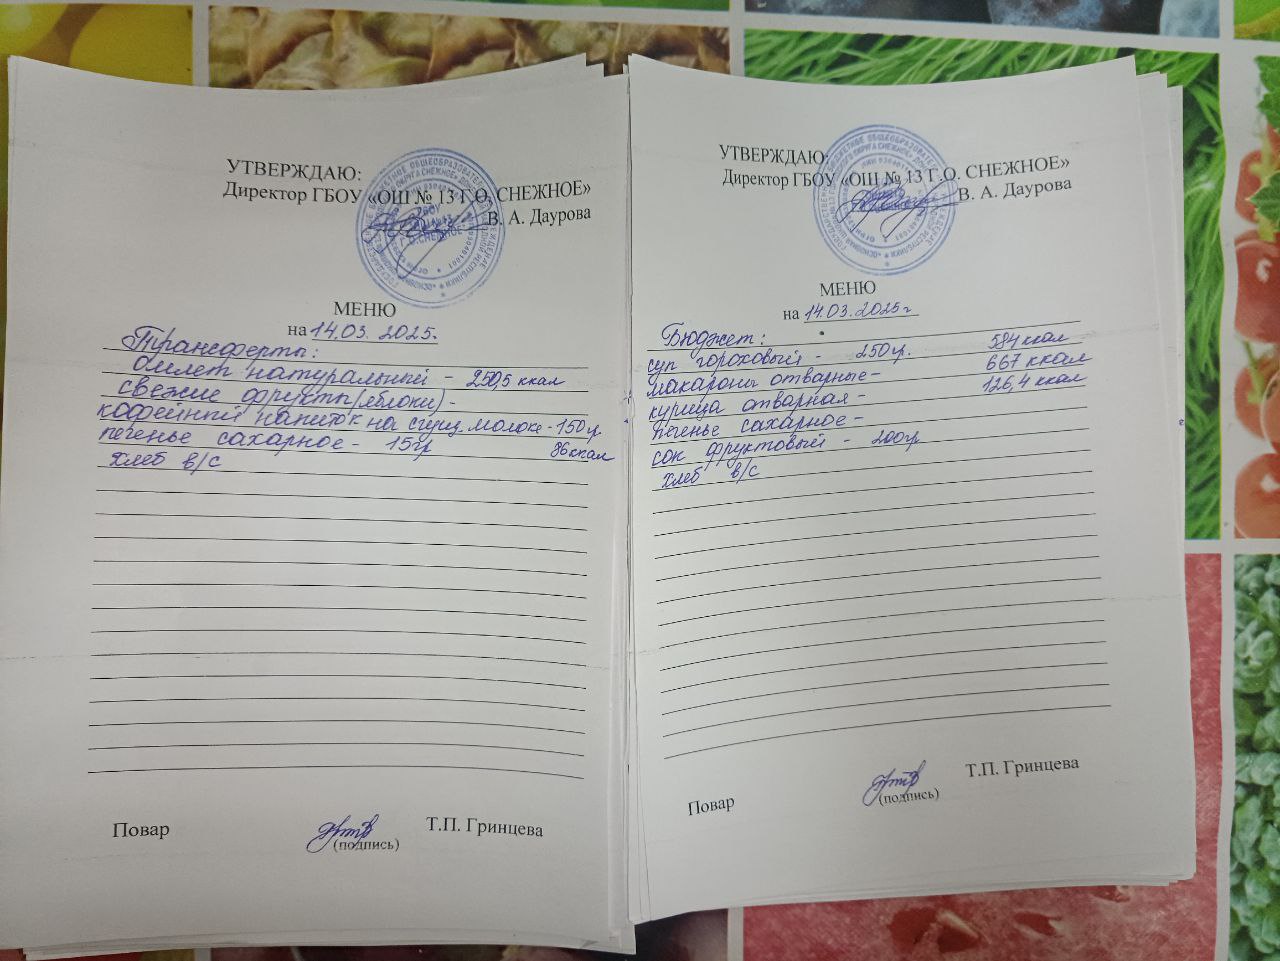 УТВЕРЖДАЮ:
Директор ГБОУ «ОШ № 13 Г.О. СНЕЖНОЕ»
В. А. Даурова
МЕНЮ
на 14.03. 2025г.
Трансферты:
омлет натуральный - 250,5 ккал
свежие фрукты (яблоки) -
кофейный напиток на сгущ. молоке - 150 гр.
печенье сахарное - 15гр 86 ккал
хлеб в/с
Повар
(подпись)
Т.П. Гринцева
УТВЕРЖДАЮ:
Директор ГБОУ «ОШ № 13 Г.О. СНЕЖНОЕ»
В. А. Даурова
МЕНЮ
на 14.03.2025г
Бюджет:
суп гороховый - 250гр. 584 ккал
макароны отварные - 667 ккал
курица отварная - 126,4 ккал
печенье сахарное -
сок фруктовый - 200гр
хлеб в/с
Повар
(подпись)
Т.П. Гринцева